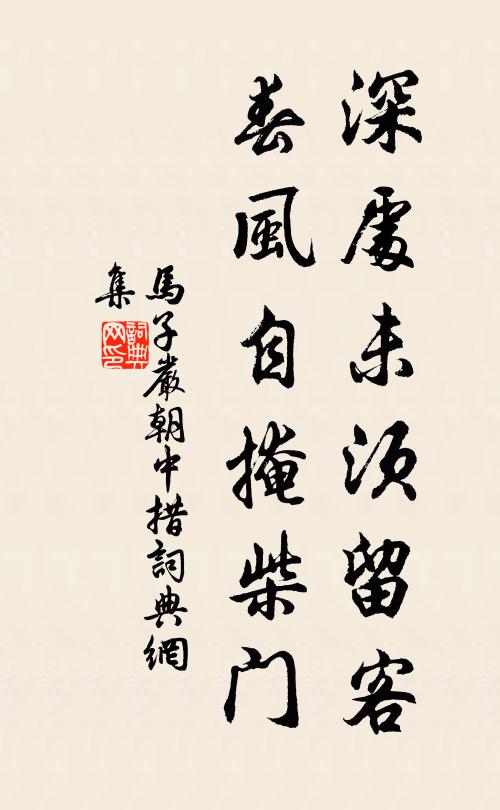 深處未須留客
春風自掩柴門
馬子嚴朝中措詞典網
集
詞典网印